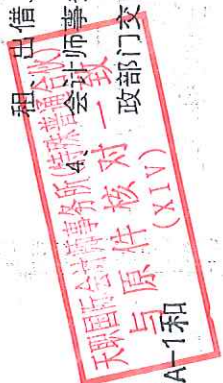 租、出借
4、会计师事
政部门交
天职国际会计师事务所(特殊普通合伙)
与原件核对一致
(XIV)
A-1和